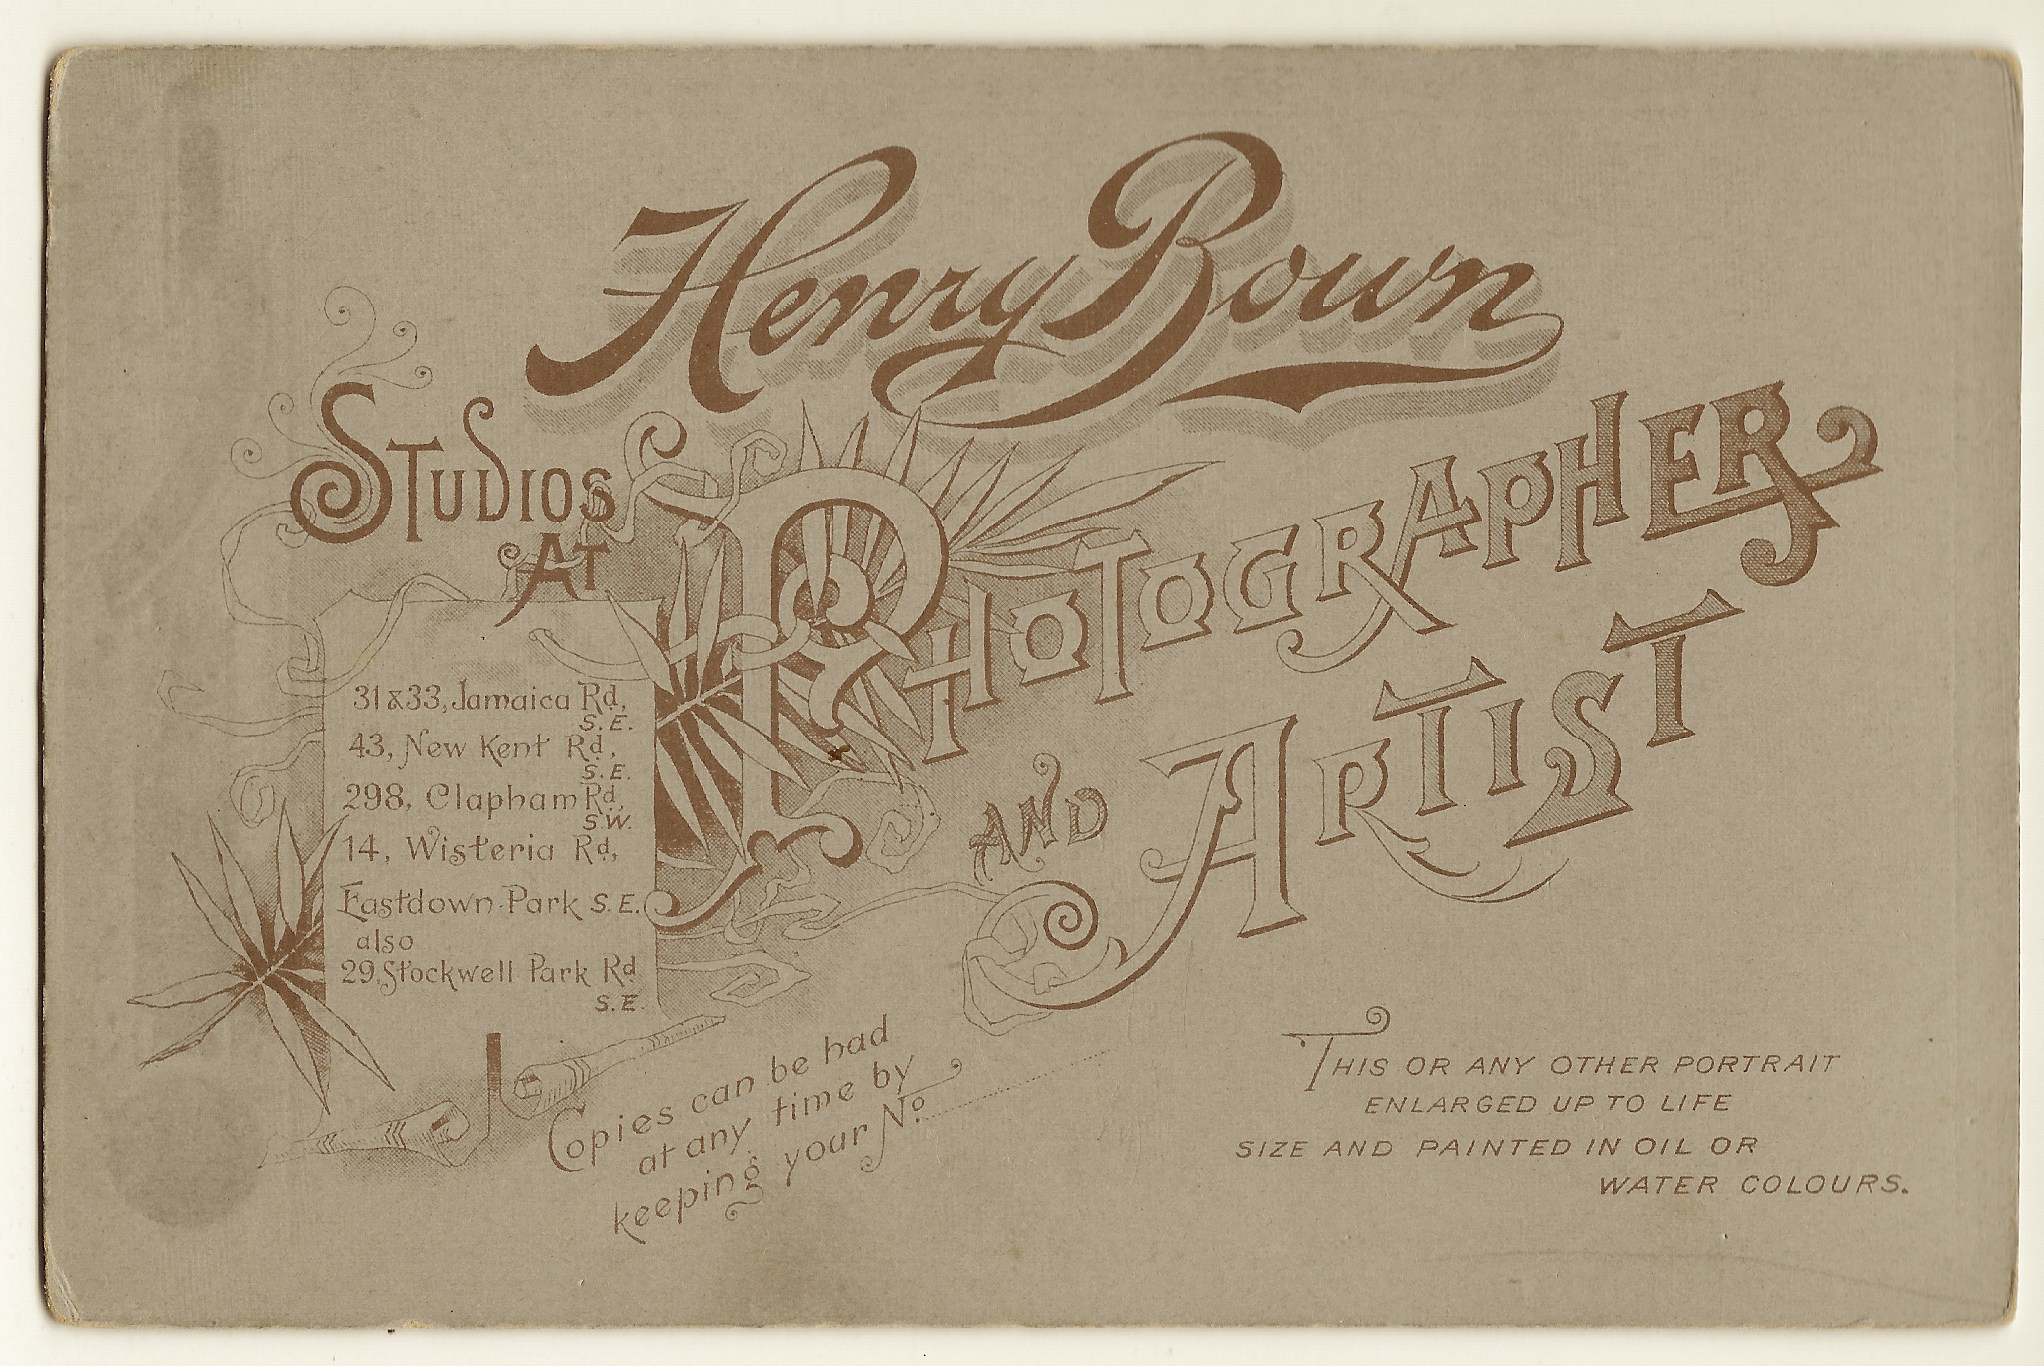 Henry Bown
PHOTOGRAPHER
AND ARTIST
STUDIOS
AT
31 & 33, Jamaica Rd,
S.E.
43, New Kent Rd,
S.E.
298, Clapham Rd,
S.W.
14, Wisteria Rd,
Eastdown Park S.E.
also
29, Stockwell Park Rd
S.E.
Copies can be had
at any time by
keeping your No
THIS OR ANY OTHER PORTRAIT
ENLARGED UP TO LIFE
SIZE AND PAINTED IN OIL OR
WATER COLOURS.